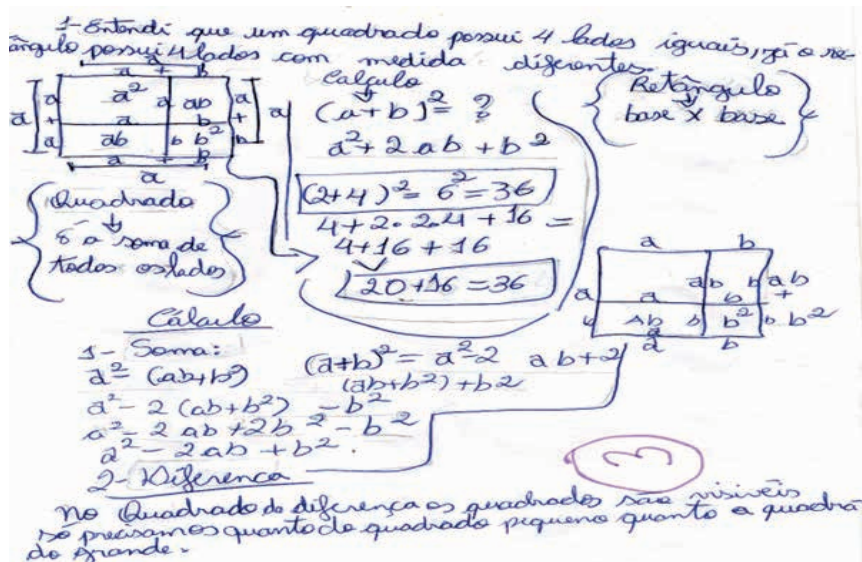 1- Entendi que um quadrado possui 4 lados iguais, já o re-
ângulo possui 4 lados com medida diferentes.
a + b
a² a ab a
a + a
a a b +
a ab b b² b
a + b
a
a
Calculo
(a+b)² = ?
a² + 2ab + b²
(2+4)² = 6² = 36
4 + 2. 2.4 + 16 =
4+16 + 16
20+16 = 36
Retângulo
base x base
Quadrado
é a soma de
todos os lados
a b
a a ab b b ab
+
b Ab b b² b b²
a b
Cálculo
1- Soma:
a² = (ab+b²)
a² - 2 (ab+b²) - b²
a² - 2 ab + 2b² - b²
a² - 2ab + b².
(a+b)² = a² - 2 ab + 2
(ab+b²) + b2
2- Diferença
3
No Quadrado da diferença os quadrados são visiveis
só precisamos quanto do quadrado piqueno quanto a quadra-
do grande.